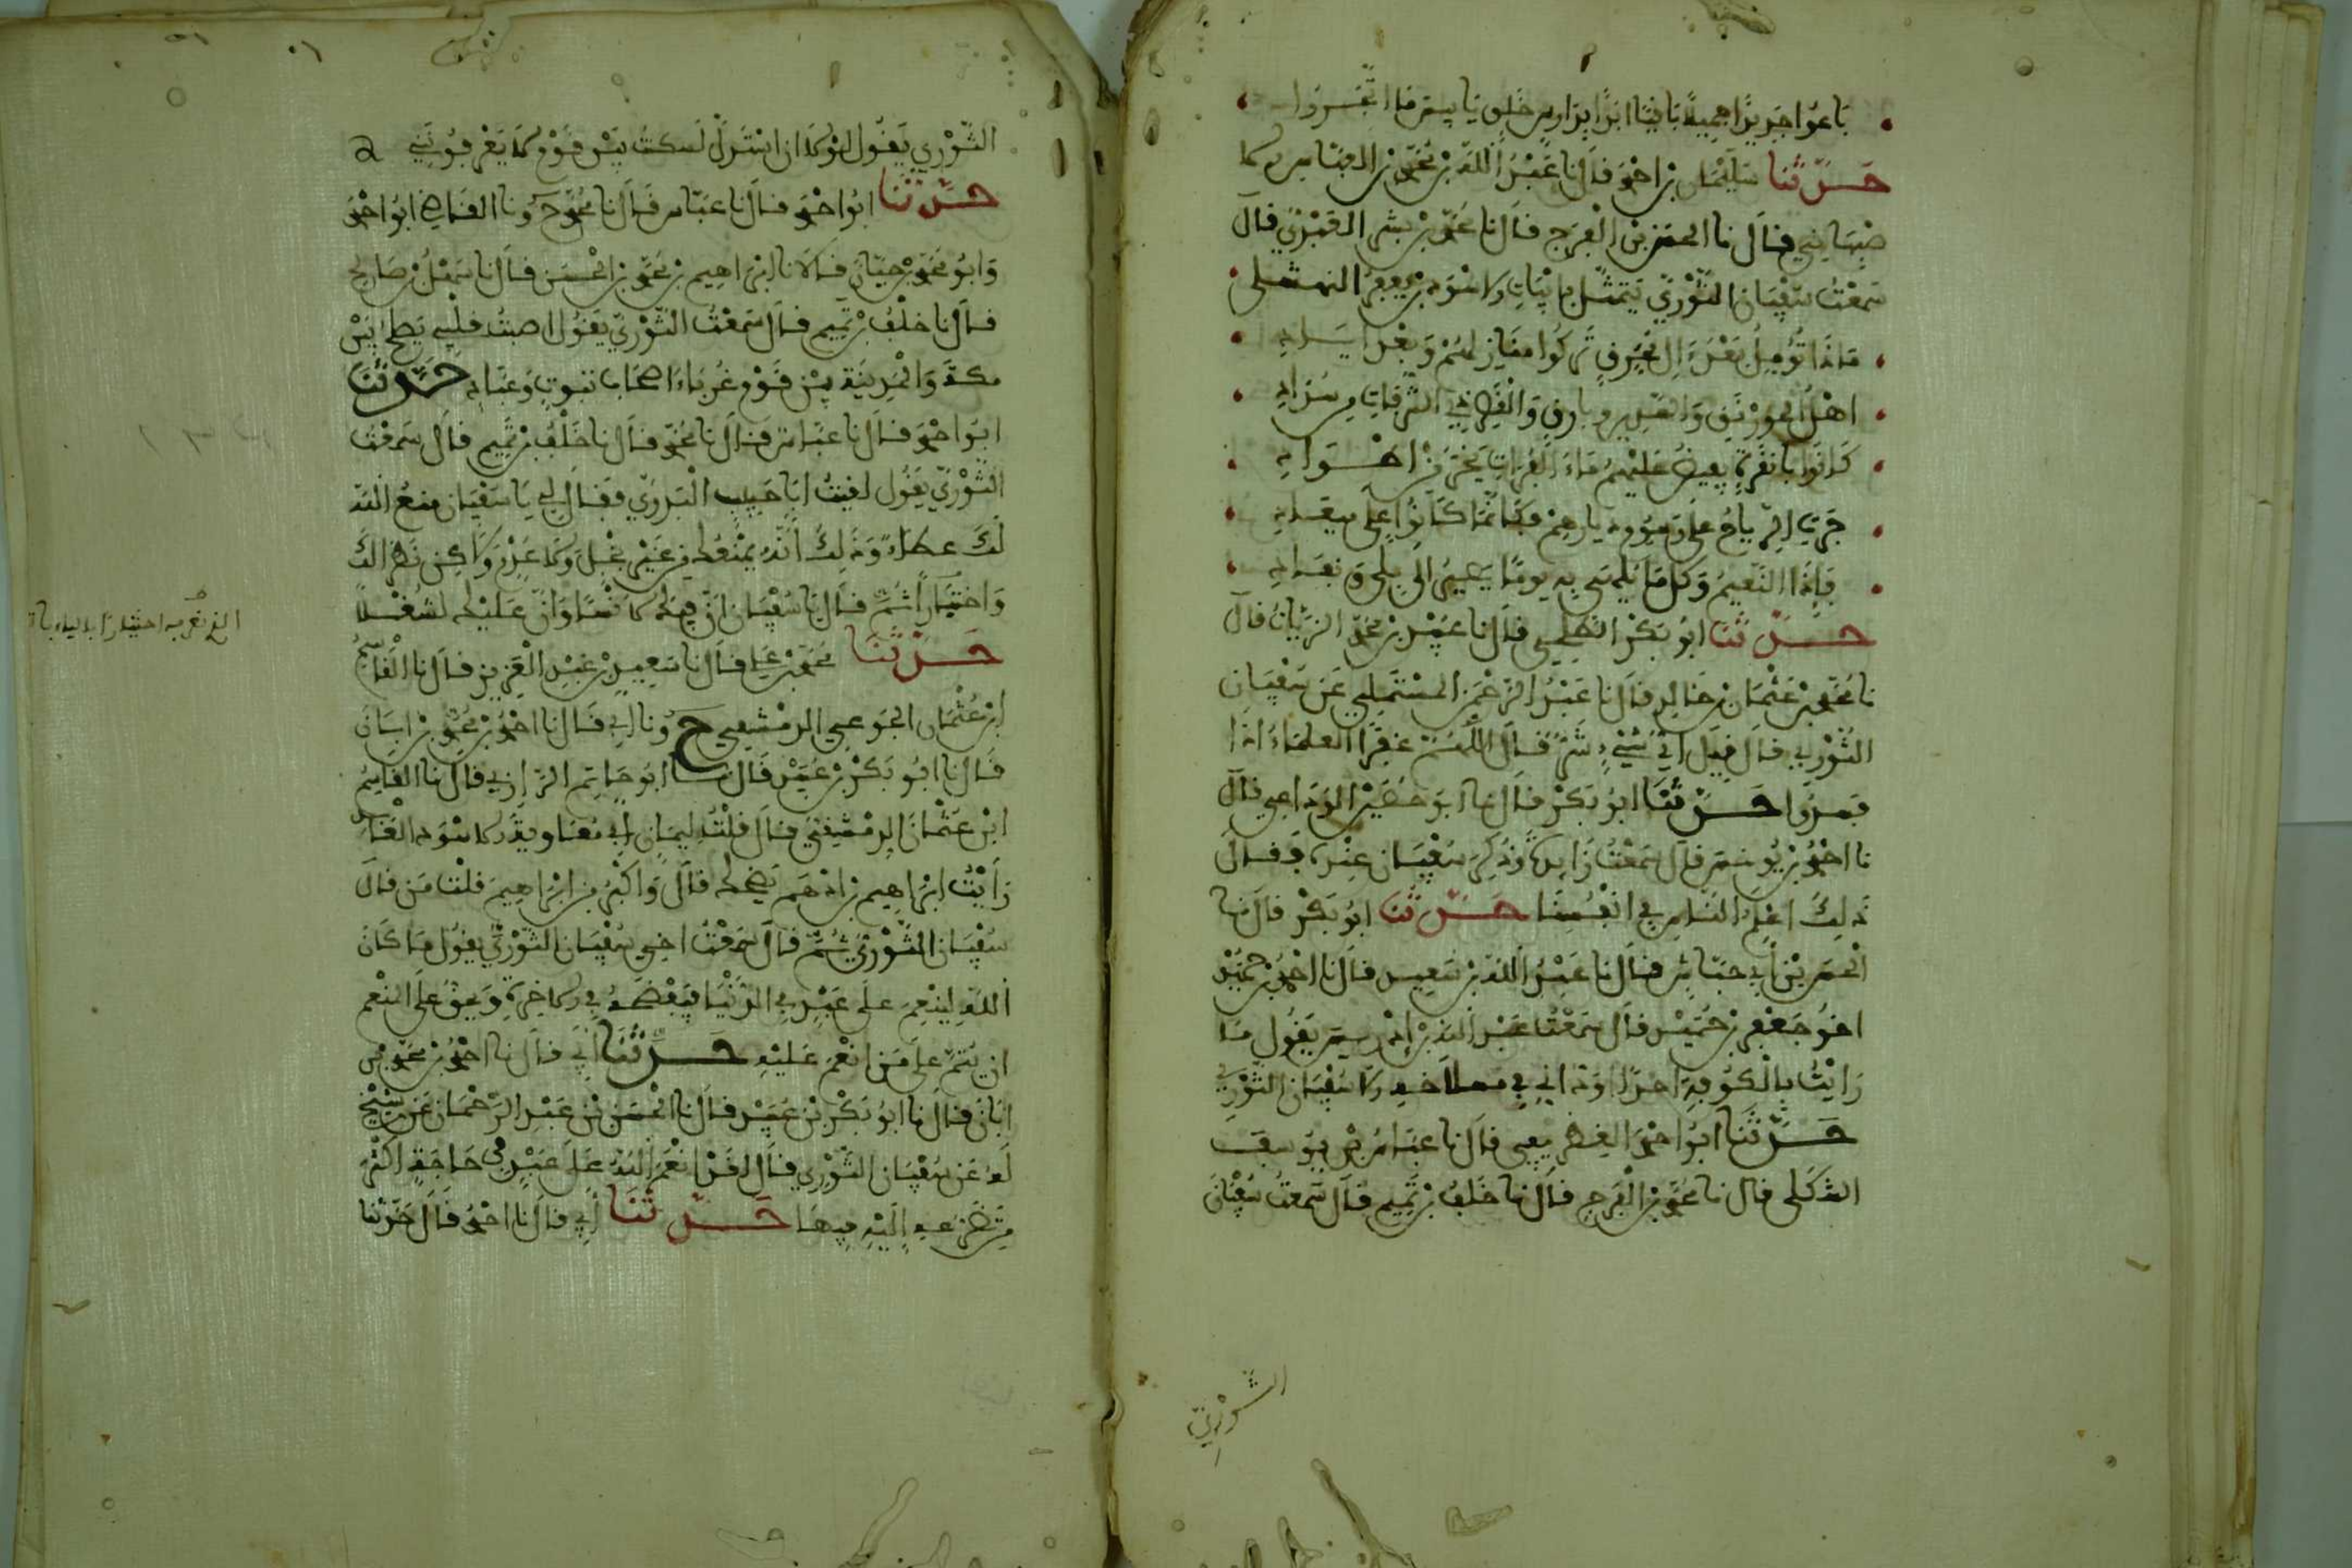 باعوا جديدا جميلا باقيا ابدا بدارس خلق يا بيس ما اتجروا
حدثنا سليمان بن احمد قال نا عبد الله بن محمد بن العباس الا
صبهاني قال نا الحسن بن الفرج قال نا محمد بن بشر قال
سمعت سفيان الثوري يتمثل بابيات الاسود بن يعفر النهشلي
ماذا تؤمل بعد ال محرق تركوا منازلهم وبعد اياد
اهل الخورنق والسدير وبارق والقصر ذي الشرفات من سنداد
كانوا بانقرة يفيض عليهم ماء الفرات يخر من اطواد
جرت الرياح على رسوم ديارهم فكانما كانوا على ميعاد
فاذا النعيم وكل ما يلهى به يوما يصير الى بلى ونفاد
حدثنا ابو بكر الطلحي قال نا عبيد بن محمد الزيات قال
نا محمد بن عثمان بن خالد قال نا عبد الرحمن المستملي عن سفيان
الثوري قال قيل اي شيء شر قال اللهم غفرا العلماء اذا
فسدوا حدثنا ابو بكر قال نا ابو حصين الوداعي قال
نا احمد بن يونس قال سمعت زايدة وذكر سفيان عنده فقال
ذلك اعلم الناس في انفسنا حدثنا ابو بكر قال نا
الحسن بن حباش قال نا عبد الله بن سعيد قال نا احمد بن حميد
اخو جعفر بن حميد قال سمعت عبد الله بن ادريس يقول ما
رايت بالكوفة احدا اود اني في مسلاخه الا سفيان الثوري
حدثنا ابو احمد الغطريفي قال نا عباس بن يوسف
الشكلي قال نا محمد بن الفرج قال نا خلف بن تميم قال سمعت سفيان
الثوري
الثوري يقول لولا ان استذل لسكت بين قوم لا يعرفونني
حدثنا ابو احمد قال نا عباس قال نا محمد ح ونا القاضي ابو احمد
وابو محمد بن حيان قالا نا ابراهيم بن محمد بن الحسن قال نا سهل بن صالح
قال نا خلف بن تميم قال سمعت الثوري يقول اصبت قلبي يصلح بين
مكة والمدينة بين قوم غرباء اصحاب بتوت وعباء حدثنا
ابو احمد قال نا عباس قال نا محمد قال نا خلف بن تميم قال سمعت
الثوري يقول لقيت ابا حبيب البدوي فقال لي يا سفيان منع الله
لك عطاء وذلك انه يمنعك من غير بخل ولا عدم ولاكن نظرا لك
واختيارا ثم قال يا سفيان ان فيك لانسا وان عليك لشغلا
حدثنا محمد بن علي قال نا سعيد بن عبد العزيز قال نا القاسم
ابن عثمان الجوعي الدمشقي ح ونا ابي قال نا احمد بن محمد بن ابان
قال نا ابو بكر بن عبيد قال نا ابو حاتم الرازي قال نا القاسم
ابن عثمان الدمشقي قال قلت ليمان ابي معاوية الاسود العابد
رايت ابراهيم بن ادهم يضحك قال واكبر من ابراهيم قلت من قال
سفيان الثوري ثم قال سمعت اخي سفيان الثوري يقول ما كان
الله لينعم على عبد في الدنيا فيفضحه في الاخرة ويحق على المنعم
ان يتم على من انعم عليه حدثنا ابي قال نا احمد بن محمد بن
ابان قال نا ابو بكر بن عبيد قال نا الحسن بن عبد الرحمان عن شيخ
له عن سفيان الثوري قال لقد انعم الله على عبد في حاجة اكثر
من تضرعه اليه فيها حدثنا ابي قال نا احمد قال حدثنا